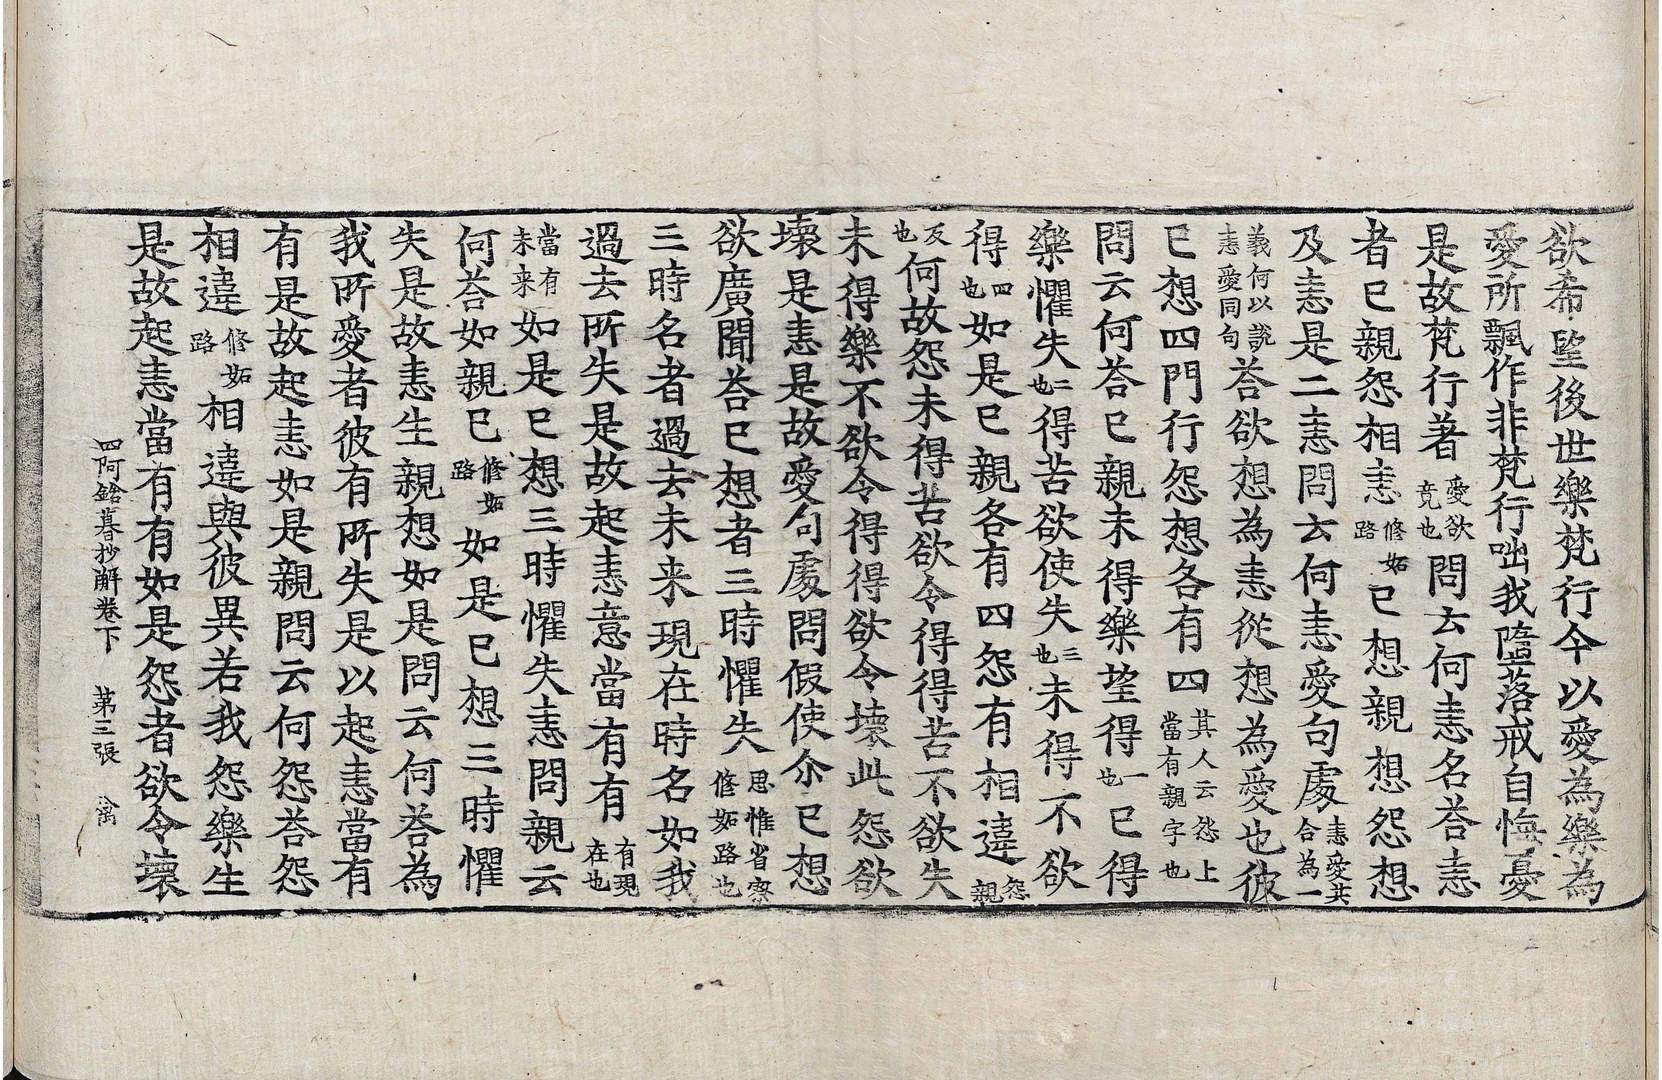 欲希望後世樂梵行今以愛為樂為
愛所飄作非梵行咄我墮落戒自悔憂
是故梵行著愛欲竟也問云何恚名荅恚
者已親怨相恚修妬路已想親想怨想
及恚是二恚問云何恚愛句處恚愛共合為一
義何以說恚愛同句荅欲想為恚從想為愛也彼
已想四門行怨想各有四其人云怨上當有親字也
問云何荅已親未得樂望得一也已得
樂懼失二也得苦欲使失三也未得不欲
得四也如是已親各有四怨有相違怨親
反也何故怨未得苦欲令得得苦不欲失
未得樂不欲令得得欲令壞此怨欲
壞是恚是故愛句處問假使尒已想
欲廣聞荅已想者三時懼失思惟省察修妬路也
三時名者過去未来現在時名如我
過去所失是故起恚意當有有有現在也
當有未来如是已想三時懼失恚問親云
何荅如親已修妬路如是已想三時懼
失是故恚生親想如是問云何荅為
我所愛者彼有所失是以起恚當有
有是故起恚如是親問云何怨荅怨
相違修妬路相違與彼異若我怨樂生
是故起恚當有有如是怨者欲令壞
四阿鋡暮抄解卷下 第三張 禽